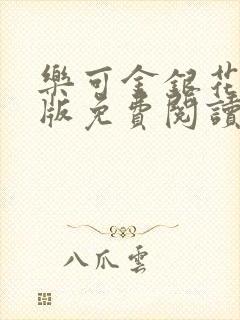 樂可金銀花
版免費閱讀
八爪雲